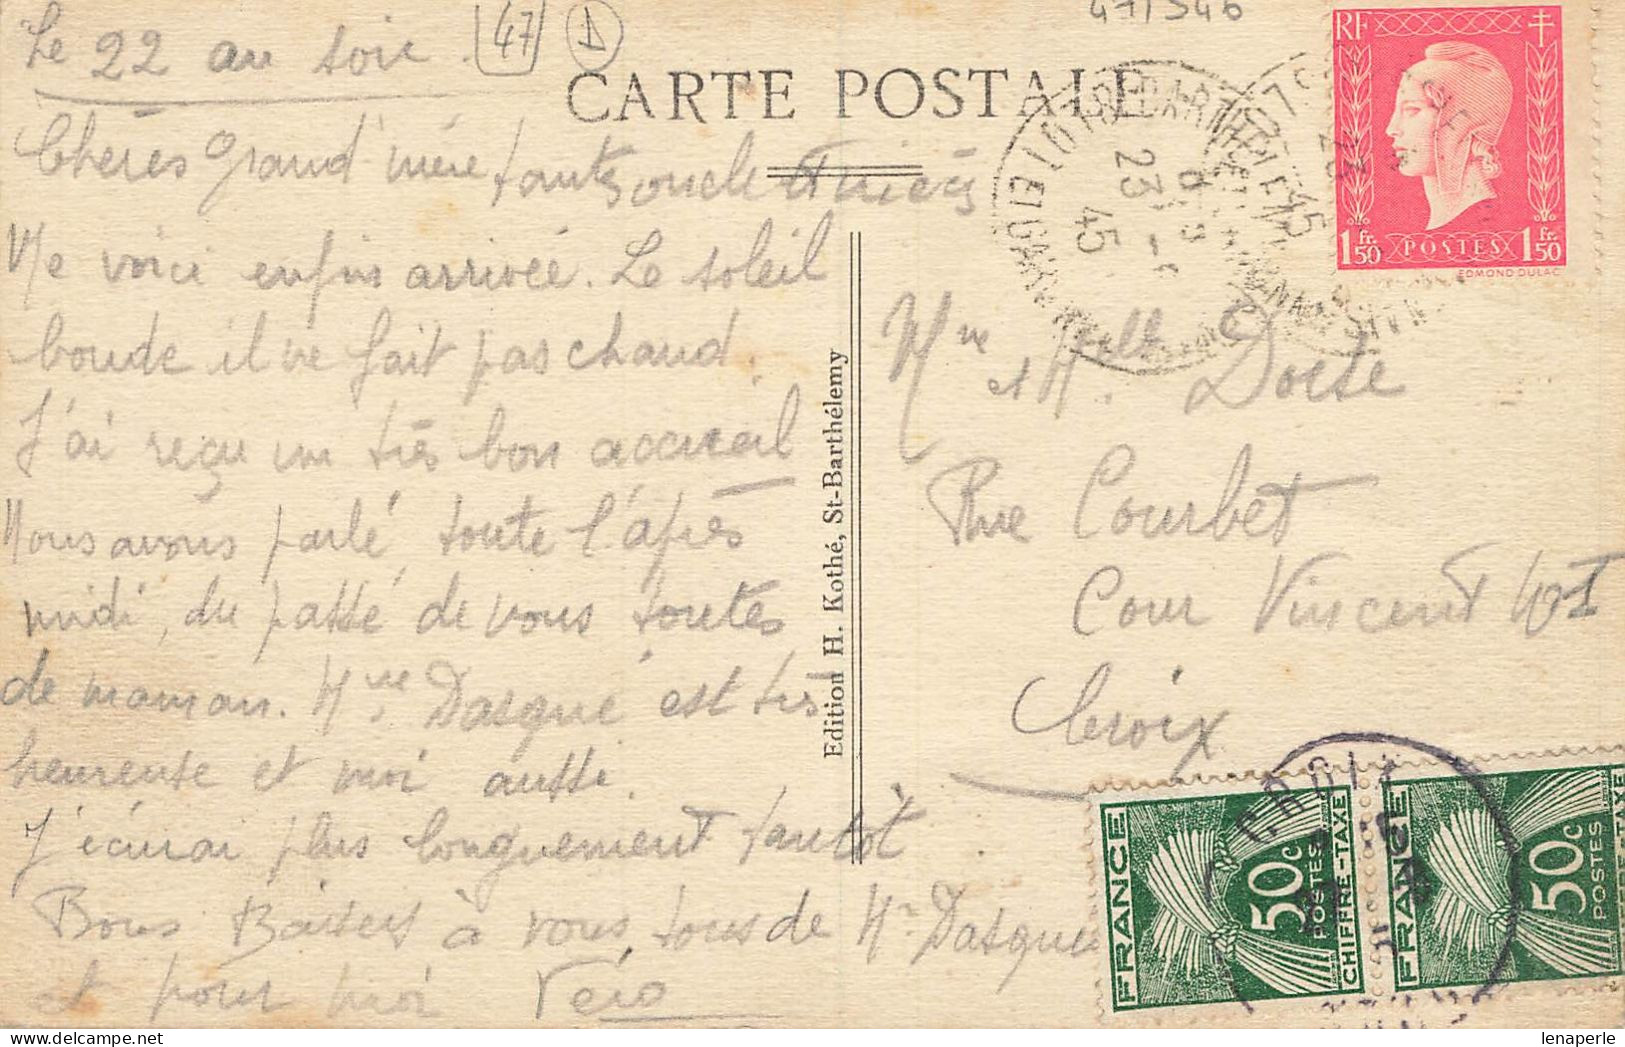 47/546
Le 22 au soir.
47
A
CARTE POSTALE
RF
1 Fr. 50
POSTES
1 Fr. 50
EDMOND DULAC
23
45
Chères Grand'mère tantes oncle et nièces
Me voici enfin arrivée. Le soleil
boude il ne fait pas chaud.
J'ai reçu un très bon accueil
Nous avons parlé toute l'après
midi, du passé de vous toutes
de maman. Mme Dasque est très
heureuse et moi aussi.
J'écrirai plus longuement tantôt
Bons Baisers à vous tous de Me Dasque
et pour moi Véro
Edition H. Kothé, St-Barthélemy
Mme et Melle Doise
Rue Courbet
Cour Vincent
Croix
CROIX
FRANCE
50c
POSTES
CHIFFRE-TAXE
FRANCE
50c
POSTES
lenaperle